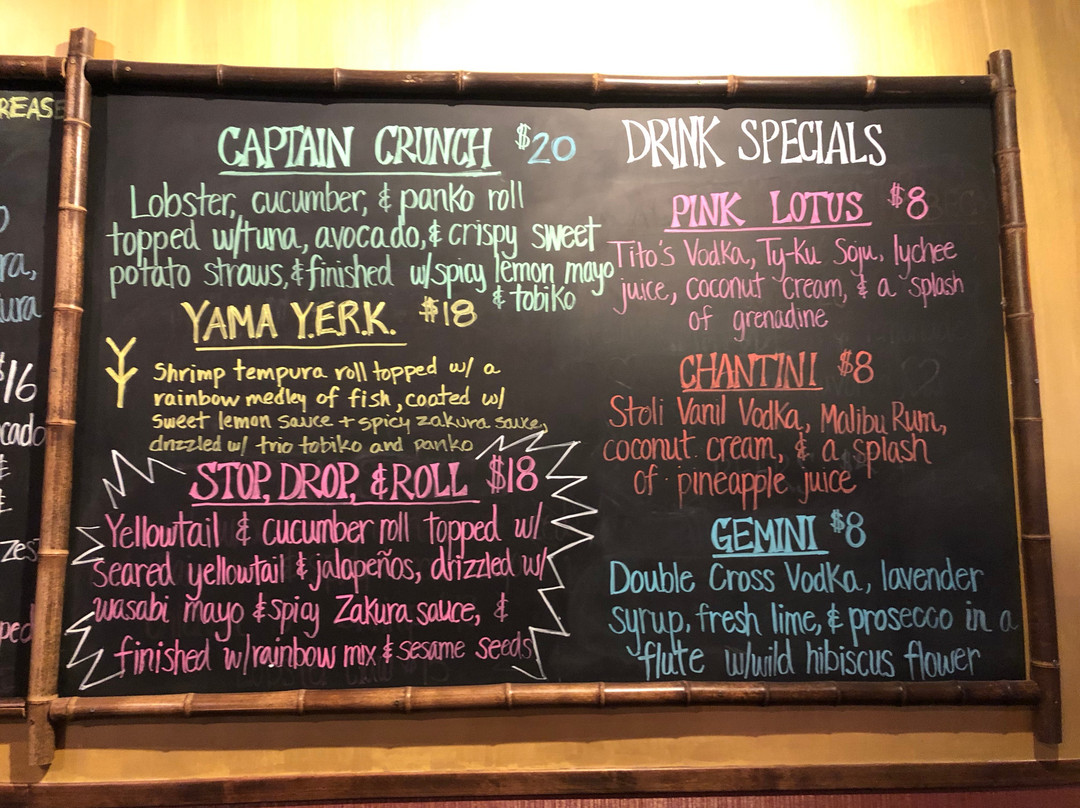 REASE
$16
CAPTAIN CRUNCH $20
Lobster, cucumber, & panko roll
topped w/tuna, avocado, & crispy sweet
potato straws, & finished w/spicy lemon mayo
& tobiko
YAMA Y.E.R.K. $18
Shrimp tempura roll topped w/ a
rainbow medley of fish, coated w/
sweet lemon sauce + spicy zakura sauce,
drizzled w/ trio tobiko and panko
STOP, DROP, & ROLL $18
Yellowtail & cucumber roll topped w/
seared yellowtail & jalapeños, drizzled w/
wasabi mayo & spicy Zakura sauce, &
finished w/rainbow mix & sesame seeds
DRINK SPECIALS
PINK LOTUS $8
Tito's Vodka, Ty-Ku Soju, lychee
juice, coconut cream, & a splash
of grenadine
CHANTINI $8
Stoli Vanil Vodka, Malibu Rum,
coconut cream, & a splash
of pineapple juice
GEMINI $8
Double Cross Vodka, lavender
syrup, fresh lime, & prosecco in a
flute w/wild hibiscus flower